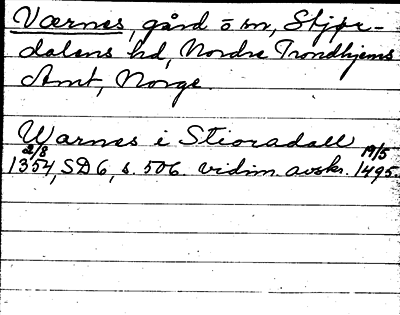 Værnes, gård o̅ sn, Stjør-
dalens hd, Nordre Trondhjems
Amt, Norge.
Warnes i Stioradall
2/8 1354, SD 6, s. 506. vidim. avskr. 19/5 1495.